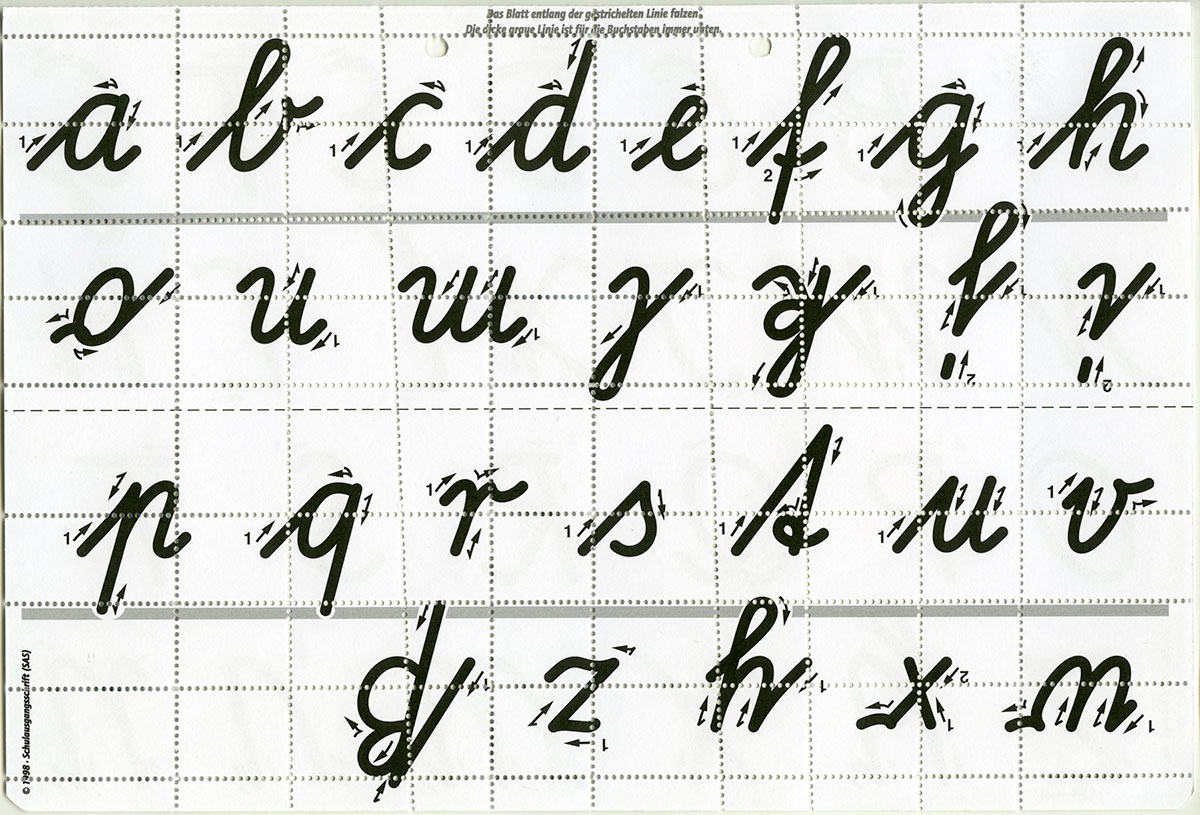 Das Blatt entlang der gestrichelten Linie falzen.
Die dicke graue Linie ist für die Buchstaben immer unten.
a b c d e f g h
i j k l m n o
p q r s t u v
w x y z ß
© 1998 - Schulausgangsschrift (SAS)